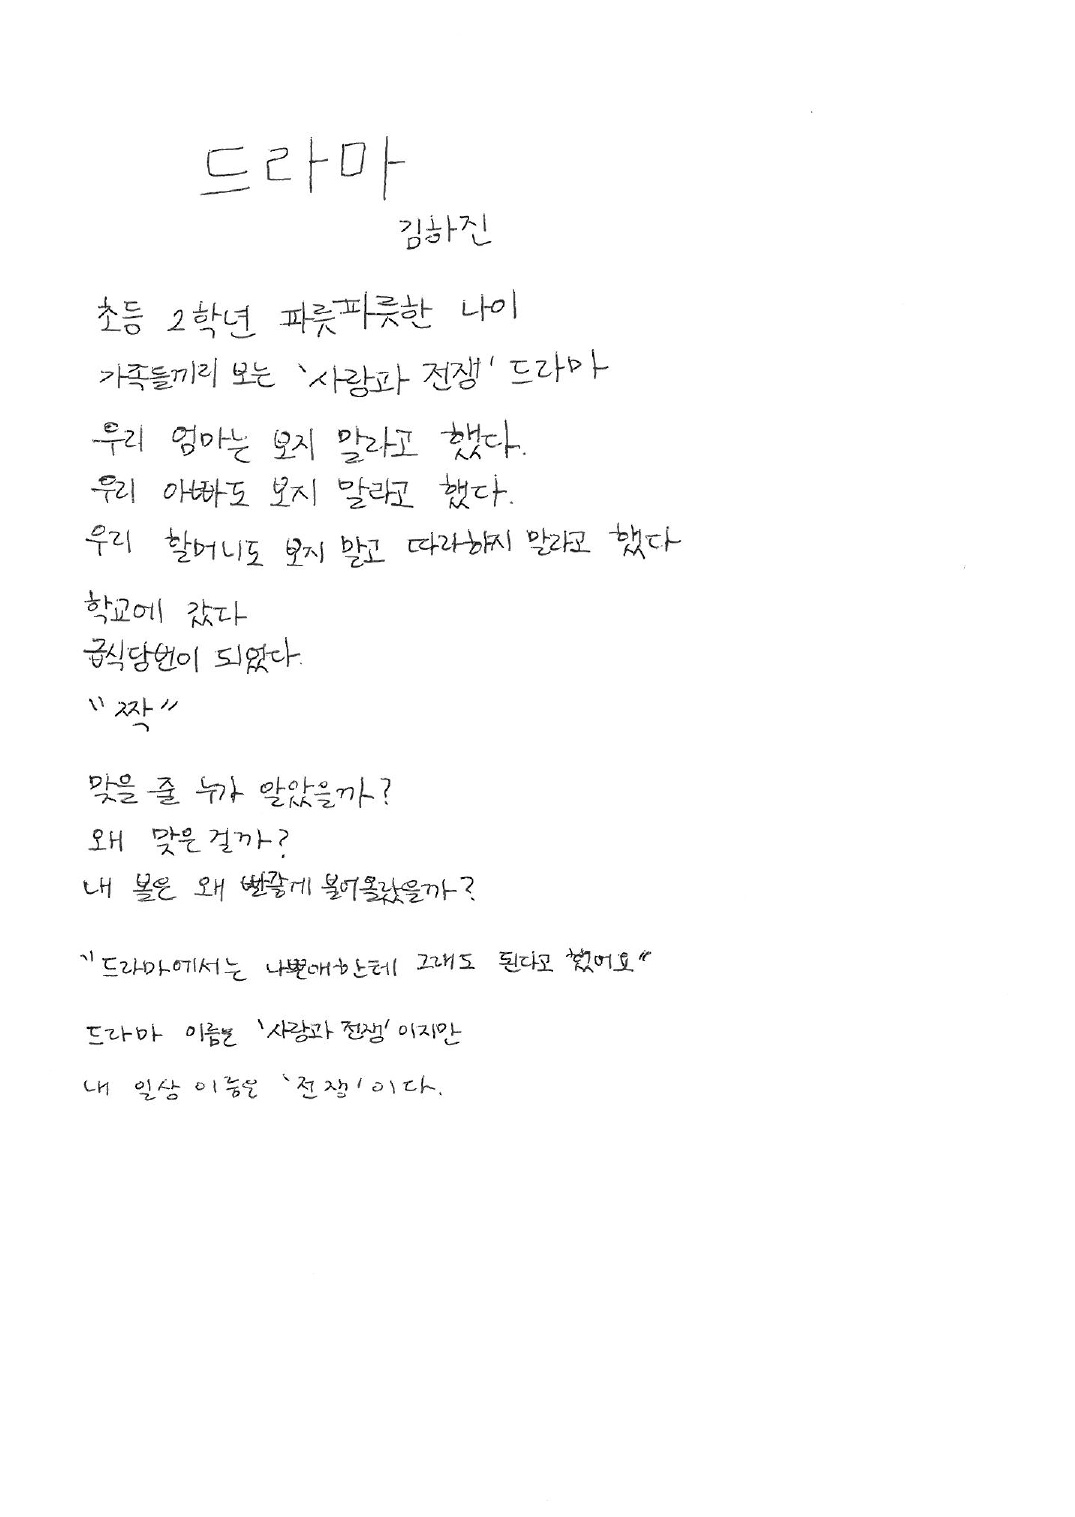 드라마
김하진
초등 2학년 파릇파릇한 나이
가족들끼리 보는 '사랑과 전쟁' 드라마
우리 엄마는 보지 말라고 했다.
우리 아빠도 보지 말라고 했다.
우리 할머니도 보지 말고 따라하지 말라고 했다
학교에 갔다
급식당번이 되었다.
"짝"
맞을 줄 누가 알았을까?
왜 맞은걸까?
내 볼은 왜 빨갛게 불어올랐을까?
"드라마에서는 나쁜애한테 그래도 된다고 했어요"
드라마 이름은 '사랑과 전쟁'이지만
내 일상 이름은 '전쟁'이다.